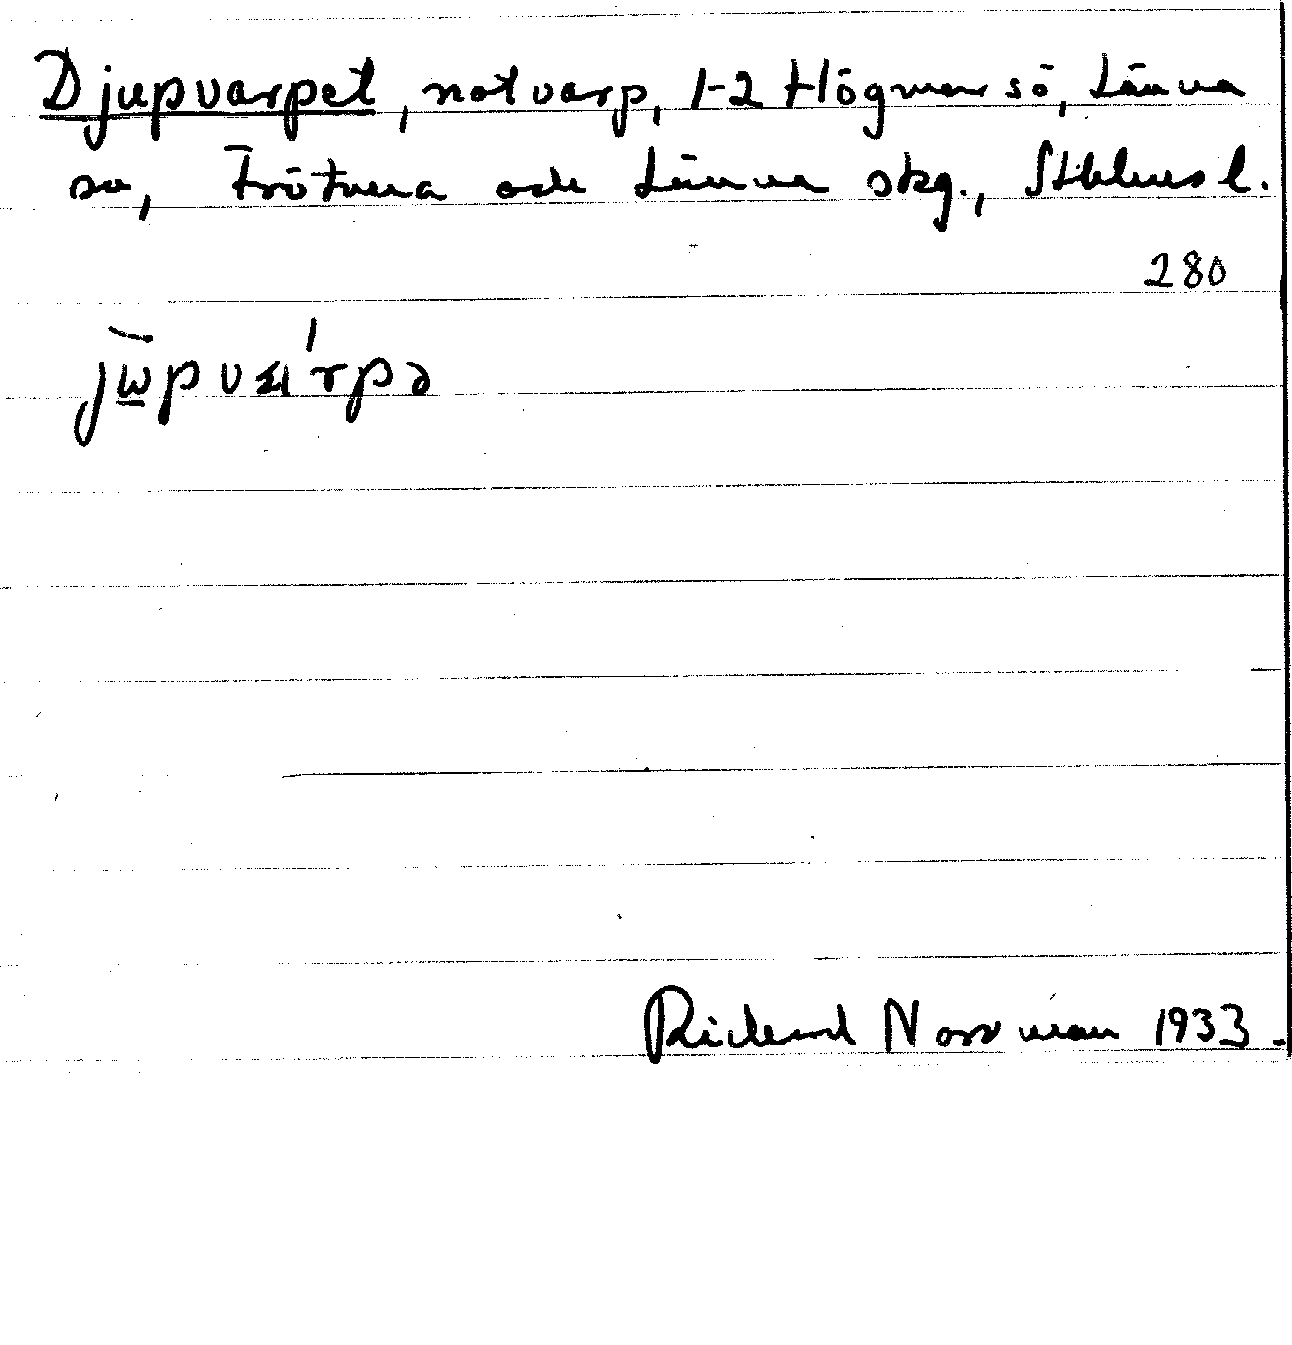 Djupvarpet, notvarp, 1-2 Högmarsö, Länna
sn, Frötuna och Länna skg., Sthlms l.
280
Rickard Norrman 1933.